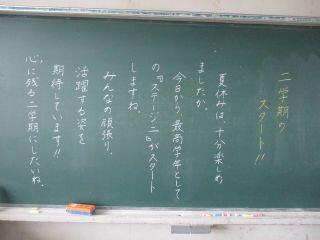 二学期の
スタート!!
夏休みは、十分楽しめ
ましたか。
今日から、最高学年として
の『ステージ二』がスタート
しますね。
みんなの頑張り、
活躍する姿を
期待しています!!
心に残る二学期にしたいね。